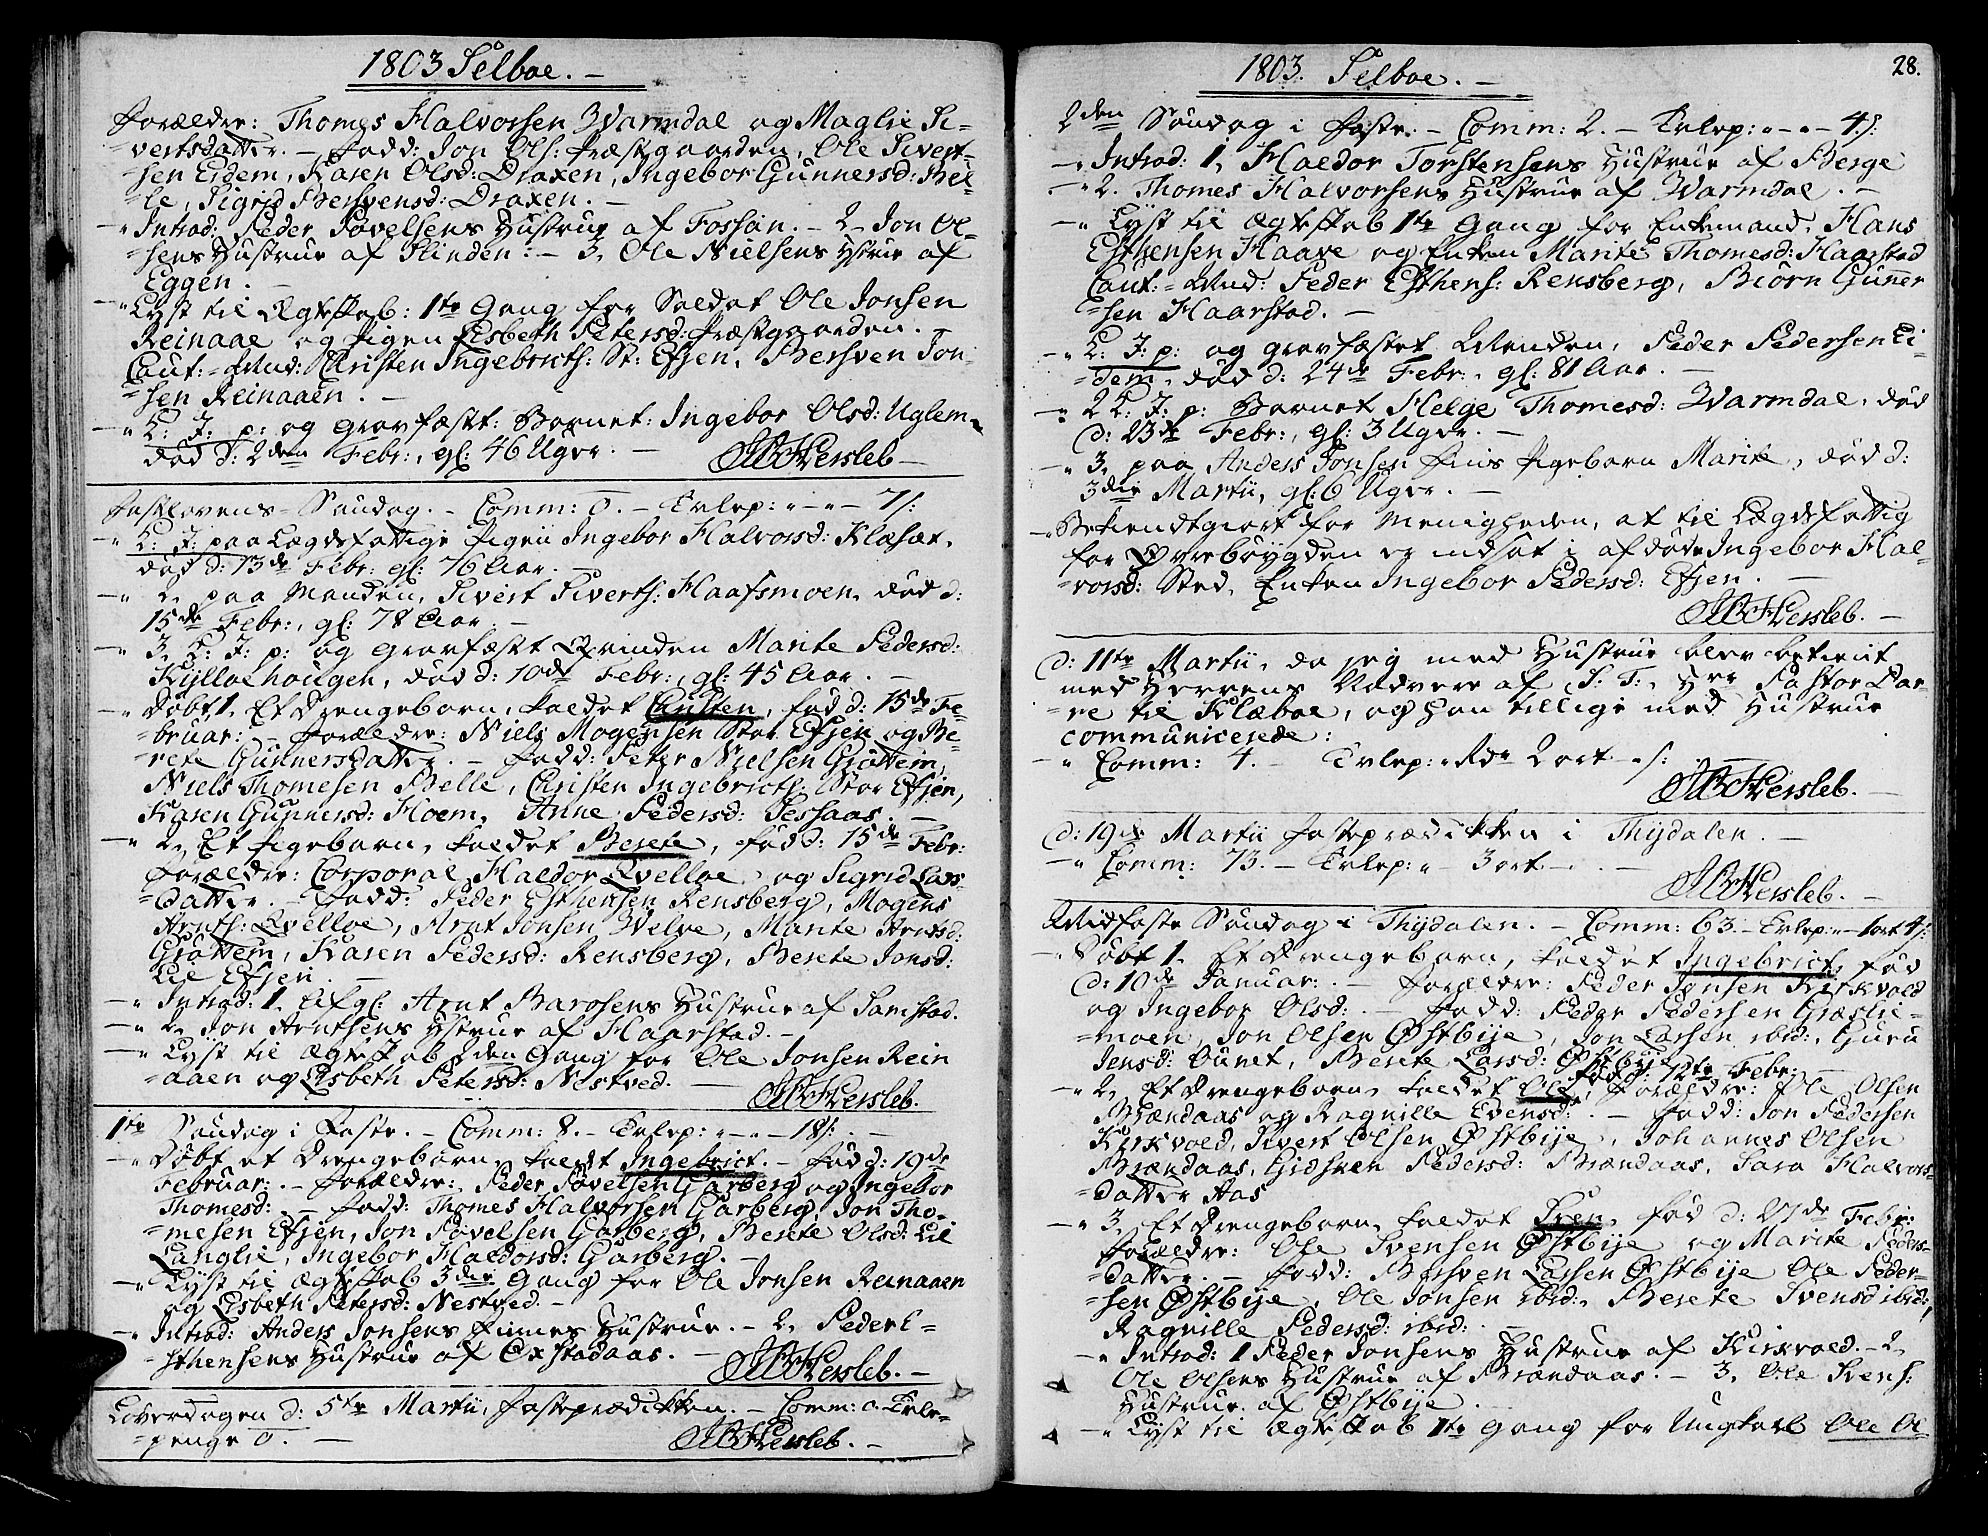 1803 Selboe. —
Forældre: Thomes Halvorsen Warmdal og Maglie Si-
-vertsdatter. — Fadd: Jon Ols: Præstgaarden, Ole Sivert-
-sen Eidem, Karen Olsd: Draxen, Ingebor Gunnersd: Bel-
-le, Sigrid Bersvensd: Draxen. —
—" Introd: Peder Povelsens Hustrue af Fossan. — 2, Jon Ol-
-sens Hustrue af Slinden. — 3, Ole Nielsens Hstrue af
Eggen. —
—" Lyst til Ægteskab: 1te Gang for Soldat Ole Jonsen
Reinaae og Pigen Lisbeth Petersd: Præstgaarden. —
Caut:- Mænd: Christen Ingebricts: St: Efjen, Bersven Jon-
-sen Reinaaen. —
—" L: J: p: og gravfæstet: Barnet: Ingebor Olsd: Uglem,
død d: 2den Febr:, gl: 46 Uger. — HBHersleb —
Fastelovens- Søndag. — Comm: 0. — Tvlep: "—"— 7 s:
—" L: J: paa Lægdsfattige Pigen Ingebor Halvorsd: Klæsæt,
død d: 13de Febr: gl: 76 Aar. —
—" 2, paa Manden, Sivert Siverts: Haafsmoen, død d:
15de Febr:, gl: 78 Aar. —
—" 3, L: J: p: og gravfæstet Qvinden Marite Pedersd:
Kylloshougen, død d: 10de Febr:, gl: 45 Aar. —
—" Døbt 1, Et Drengebarn, kaldet Christen, fød d: 15de Fe-
-bruar: — Forældre: Niels Mogensen Stor Efjen og Be-
-rete Gunnersdatter. — Fadd: Peter Nielsen Grøttem,
Niels Thomesen Belle, Christen Ingebricts: Stor Efjen,
Karen Gunnersd: Hoem, Anne Pedersd: Sessaas. —
—" 2, Et Pigebarn, kaldet Berete, fød d: 15de Febr:
Forældre: Corporal Haldor Qvelloe og Sigrid Lars-
datter. — Fadd: Peder Esthensen Rensberg, Mogens
Arnts: Qvelloe, Arnt Jonsen Welve, Marite Arntsd:
Grøttem, Karen Pedersd: Rensberg, Berete Jonsd:
Lil Efjen. —
—" Introd: 1, Afgl: Arnt Barosens Hustrue af Samstad.
—" 2, Jon Arntsens Hstrue af Haarstad. —
—" Lyst til Ægteskab 2den Gang for Ole Jonsen Rein
-aaen og Lisbeth Petersd: Nestved. —
HBHersleb.
1te Søndag i Faste. — Comm: 8. — Tvlep: "—"— 18 s: —
—" Døbt et Drengebarn, kaldet Ingebrict. — Fød d: 19de
Februar: — Forældre: Peder Povelsen Garberg og Ingebor
Thomesd: — Fadd: Thomes Halvorsen Garberg, Jon Tho-
-mesen Efjen, Jon Povelsen Garberg, Berete Olsd: Lil
Langlie, Ingebor Haldorsd: Garberg. —
—" Lyst til Ægteskab 3die Gang for Ole Jonsen Reinaaen
og Lisbeth Petersd: Nestved. —
—" Introd: Anders Jonsens Finnes Hustrue. — 2, Peder E-
-sthensens Hustrue af Exstadaas. — HBHersleb. —
Løverdagen d: 5te Martii, Fasteprædikken. — Comm: 0. Tvle-
-penge 0. — HBHersleb. —
1803. Selboe. —
28.
2den Søndag i Faste. — Comm: 2. — Tvlep: "—"— 4 s:
—" Introd: 1, Haldor Torstensens Hustrue af Berge
—" 2. Thomes Halvorsens Hustrue af Warmdal. —
—" Lyst til Ægteskab 1te Gang for Enkemand, Hans
Esthensen Haave og Enken Marite Thomesd: Haarstad
Caut:- Mænd: Peder Esthens: Rensberg, Biørn Gunner
-sen Haarstad. —
—" L: J: p: og gravfæstet Manden, Peder Pedersen Ei-
-dem, død d: 24de Febr:, gl: 81 Aar. —
—" 2 L: J: p: Barnet Helge Thomesd: Warmdal, død
d: 23de Febr:, gl: 3 Uger. —
—" 3, paa Anders Jonsen Fins Pigebarn Marite, død d:
3die Martii, gl: 6 Uger. —
—" Bekiendtgiort for Menigheden, at til Lægdsfattig
for Øvrebøygden er indsat i afdøde Ingebor Hal-
-vorsd: Sted, Enken Ingebor Pedersd: Efjen. —
HBHersleb. —
d: 11te Martii, da jeg med Hustrue blev betient
med Herrens Nadvere af S: T: Hr: Pastor Dar-
-re til Klæboe, og han tillige med Hustrue
communicerede:
—" Comm: 4. — Tvlep: " Rd" 2 ort " s:
HBHersleb. —
d: 19de Martii Fasteprædikken i Thydalen. —
—" Comm: 73. — Tvlep: " — 3 ort — " —
HBHersleb. —
Midfaste Søndag i Thydalen. — Comm: 63. — Tvlep: "— 1 ort 4 s:
—" Døbt 1, Et Drengebarn, kaldet Ingebrict, fød
d: 10de Januar: — Forældre: Peder Jonsen Kirkvold
og Ingebor Olsd: — Fadd: Peder Pedersen Græslie-
-moen, Jon Olsen Østbye, Jon Larsen ibid:, Guru
Jensd: Aunet, Berete Larsd: Østbye.
—" 2, Et Drengebarn, kaldet Ole, fød d: 12te Febr: — Forældre: Ole Olsen
Brændaas og Ragnille Evensd: — Fadd: Jon Pedersen
Kirkvold, Sivert Olsen Østbye, Johannes Olsen
Brændaas, Gidsken Pedersd: Brændaas, Sara Halvors-
-datter Aas
—" 3, Et Drengebarn, kaldet Sven, fød d: 27de Febr:
Forældre: Ole Svensen Østbye og Marite Peders-
-datter. — Fadd: Bersven Larsen Østbye Ole Peder-
-sen Østbye, Ole Jonsen ibid:, Berete Svensd ibid:,
Ragnille Pedersd: ibid: —
—" Introd: 1 Peder Jonsens Hustrue af Kirkvold. — 2,
Ole Olsens Hustrue af Brændaas. — 3, Ole Svens:
Hustrue af Østbye.
—" Lyst til Ægteskab 1te Gang for Ungkarl Ole Ol-